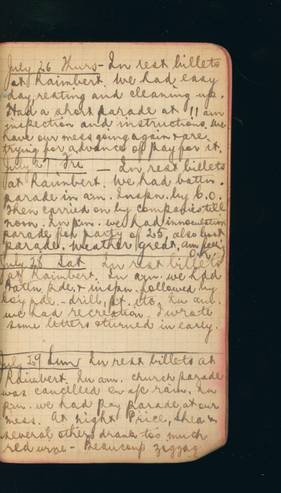 July 26 Thurs - In rest billets
at Raimbert. We had easy
day, resting and cleaning up.
Had a short parade at 11 am
inspection and instructions. We
have our mess going again & are
trying for advance of pay for it.
July 27 Fri - In rest billets
at Raimbert. We had battn.
parade in am. Inspn. by C.O.
then carried on by companies till
noon. In pm. we had innoculation
parade for party of 25, also bath
parade. Weather great, am feeling
July 28 Sat In rest billets
at Raimbert. In am. we had
battn pde. & inspn. followed by
coy pde. - drill, pt. etc. In
we had recreation. I wrote
some letters & turned in early.
July 29 Sun In rest billets at
Raimbert. In am. church parade
was cancelled on a/c rain. In
pm. we had pay parade at our
mess. At night Price, Shea &
several others drank too much
red wine - Beaucoup zigzag